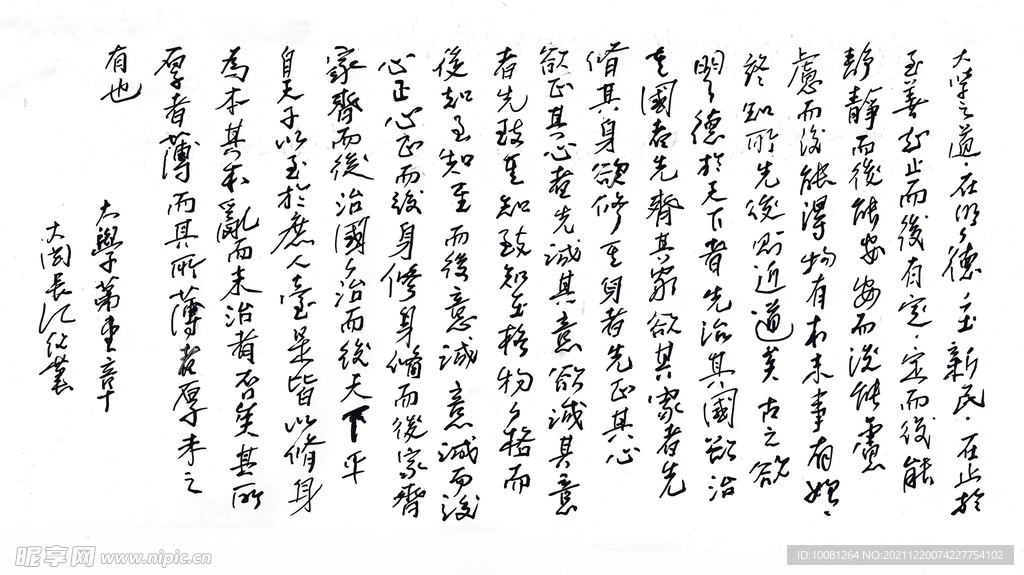 大学之道.在明々德在新民.在止於
至善知止而後有定.定而後能
静静而後能安安而後能慮
慮而後能得物有本末事有始
终知所先後则近道矣古之欲
明々德於天下者先治其國欲治
其國者先齊其家欲其家者先
脩其身欲修其身者先正其心
欲正其心者先誠其意欲誠其意
者先致其知致知在格物々格而
後知至知至而後意誠意誠而後
心正心正而後身修身脩而後家齊
家齊而後治國々治而後天下平
自天子以至於庶人壹是皆以脩身
為本其本亂而末治者否矣其所
厚者薄而其所薄者厚未之
有也
大學第壹章
昵享网 www.nipic.cn
ID:10081264 NO:20211220074227754102